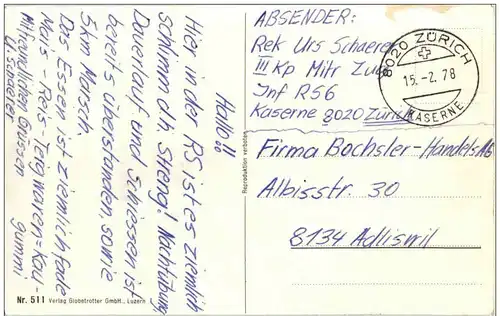 Hallo!!
Hier in der RS ist es ziemlich
streng! Nachtübung
Dauerlauf und Schiessen ist
bereits überstanden sowie
5km Marsch.
Das Essen ist ziemlich fade
Mais - Reis - Teigwaren = Kau-
gummi
Mit freundlichen Grüssen
U. Schaerer
Nr. 511 Verlag Globetrotter GmbH., Luzern
Reproduktion verboten
ABSENDER:
Rek Urs Schaerer
III Kp Mitr Zug
Inf RS6
Kaserne 8020 Zürich
8020 ZÜRICH
15.-2.78
KASERNE
Firma Bochsler-Handels AG
Albisstr. 30
8134 Adliswil